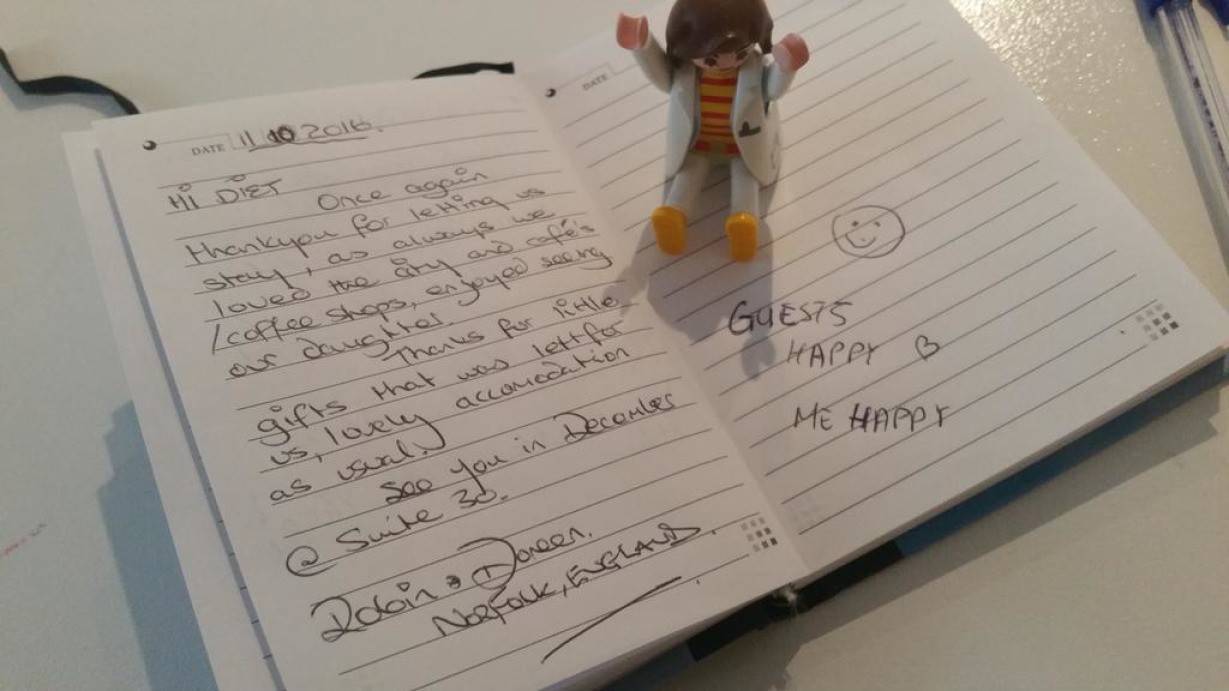 DATE 11 10 2016.
Hi DIET Once again
thankyou for letting us
stay, as always we
loved the city and café's
/coffee shops, enjoyed seeing
our daughter.
Thanks for little
gifts that was left for
us, lovely accomodation
as usual.
see you in December
@ Suite 30.
Robin & Doreen.
NORFOLK, ENGLAND.
DATE
GUESTS
HAPPY
ME HAPPY